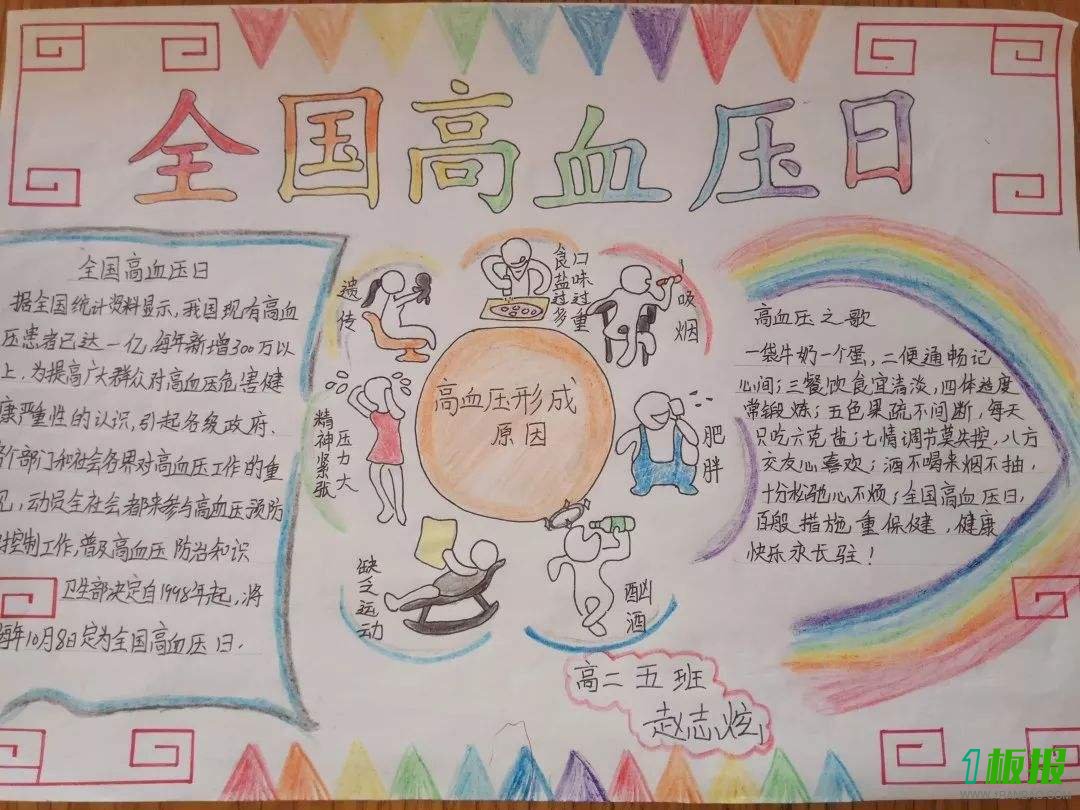 全国高血压日
全国高血压日
据全国统计资料显示，我国现有高血
压患者已达一亿，每年新增300万以
上，为提高广大群众对高血压危害健
康严重性的认识，引起各级政府、
各个部门和社会各界对高血压工作的重
见，动员全社会都来参与高血压预防
控制工作，普及高血压防治知识
卫生部决定自1998年起，将
每年10月8日定为全国高血压日．
遗传
食盐过多
口味过重
吸烟
肥胖
酗酒
缺乏运动
精神紧张
压力大
高血压形成
原因
高血压之歌
一袋牛奶一个蛋，二便通畅记
心间；三餐饮食宜清淡，四体适度
常锻炼；五色果疏不间断，每天
只吃六克盐；七情调节莫失控，八方
交友心喜欢；酒不喝来烟不抽，
十分松驰心不烦；全国高血压日，
百般措施重保健，健康
快乐永长驻！
高二五班
赵志炫
1板报
WWW.1BANBAO.COM